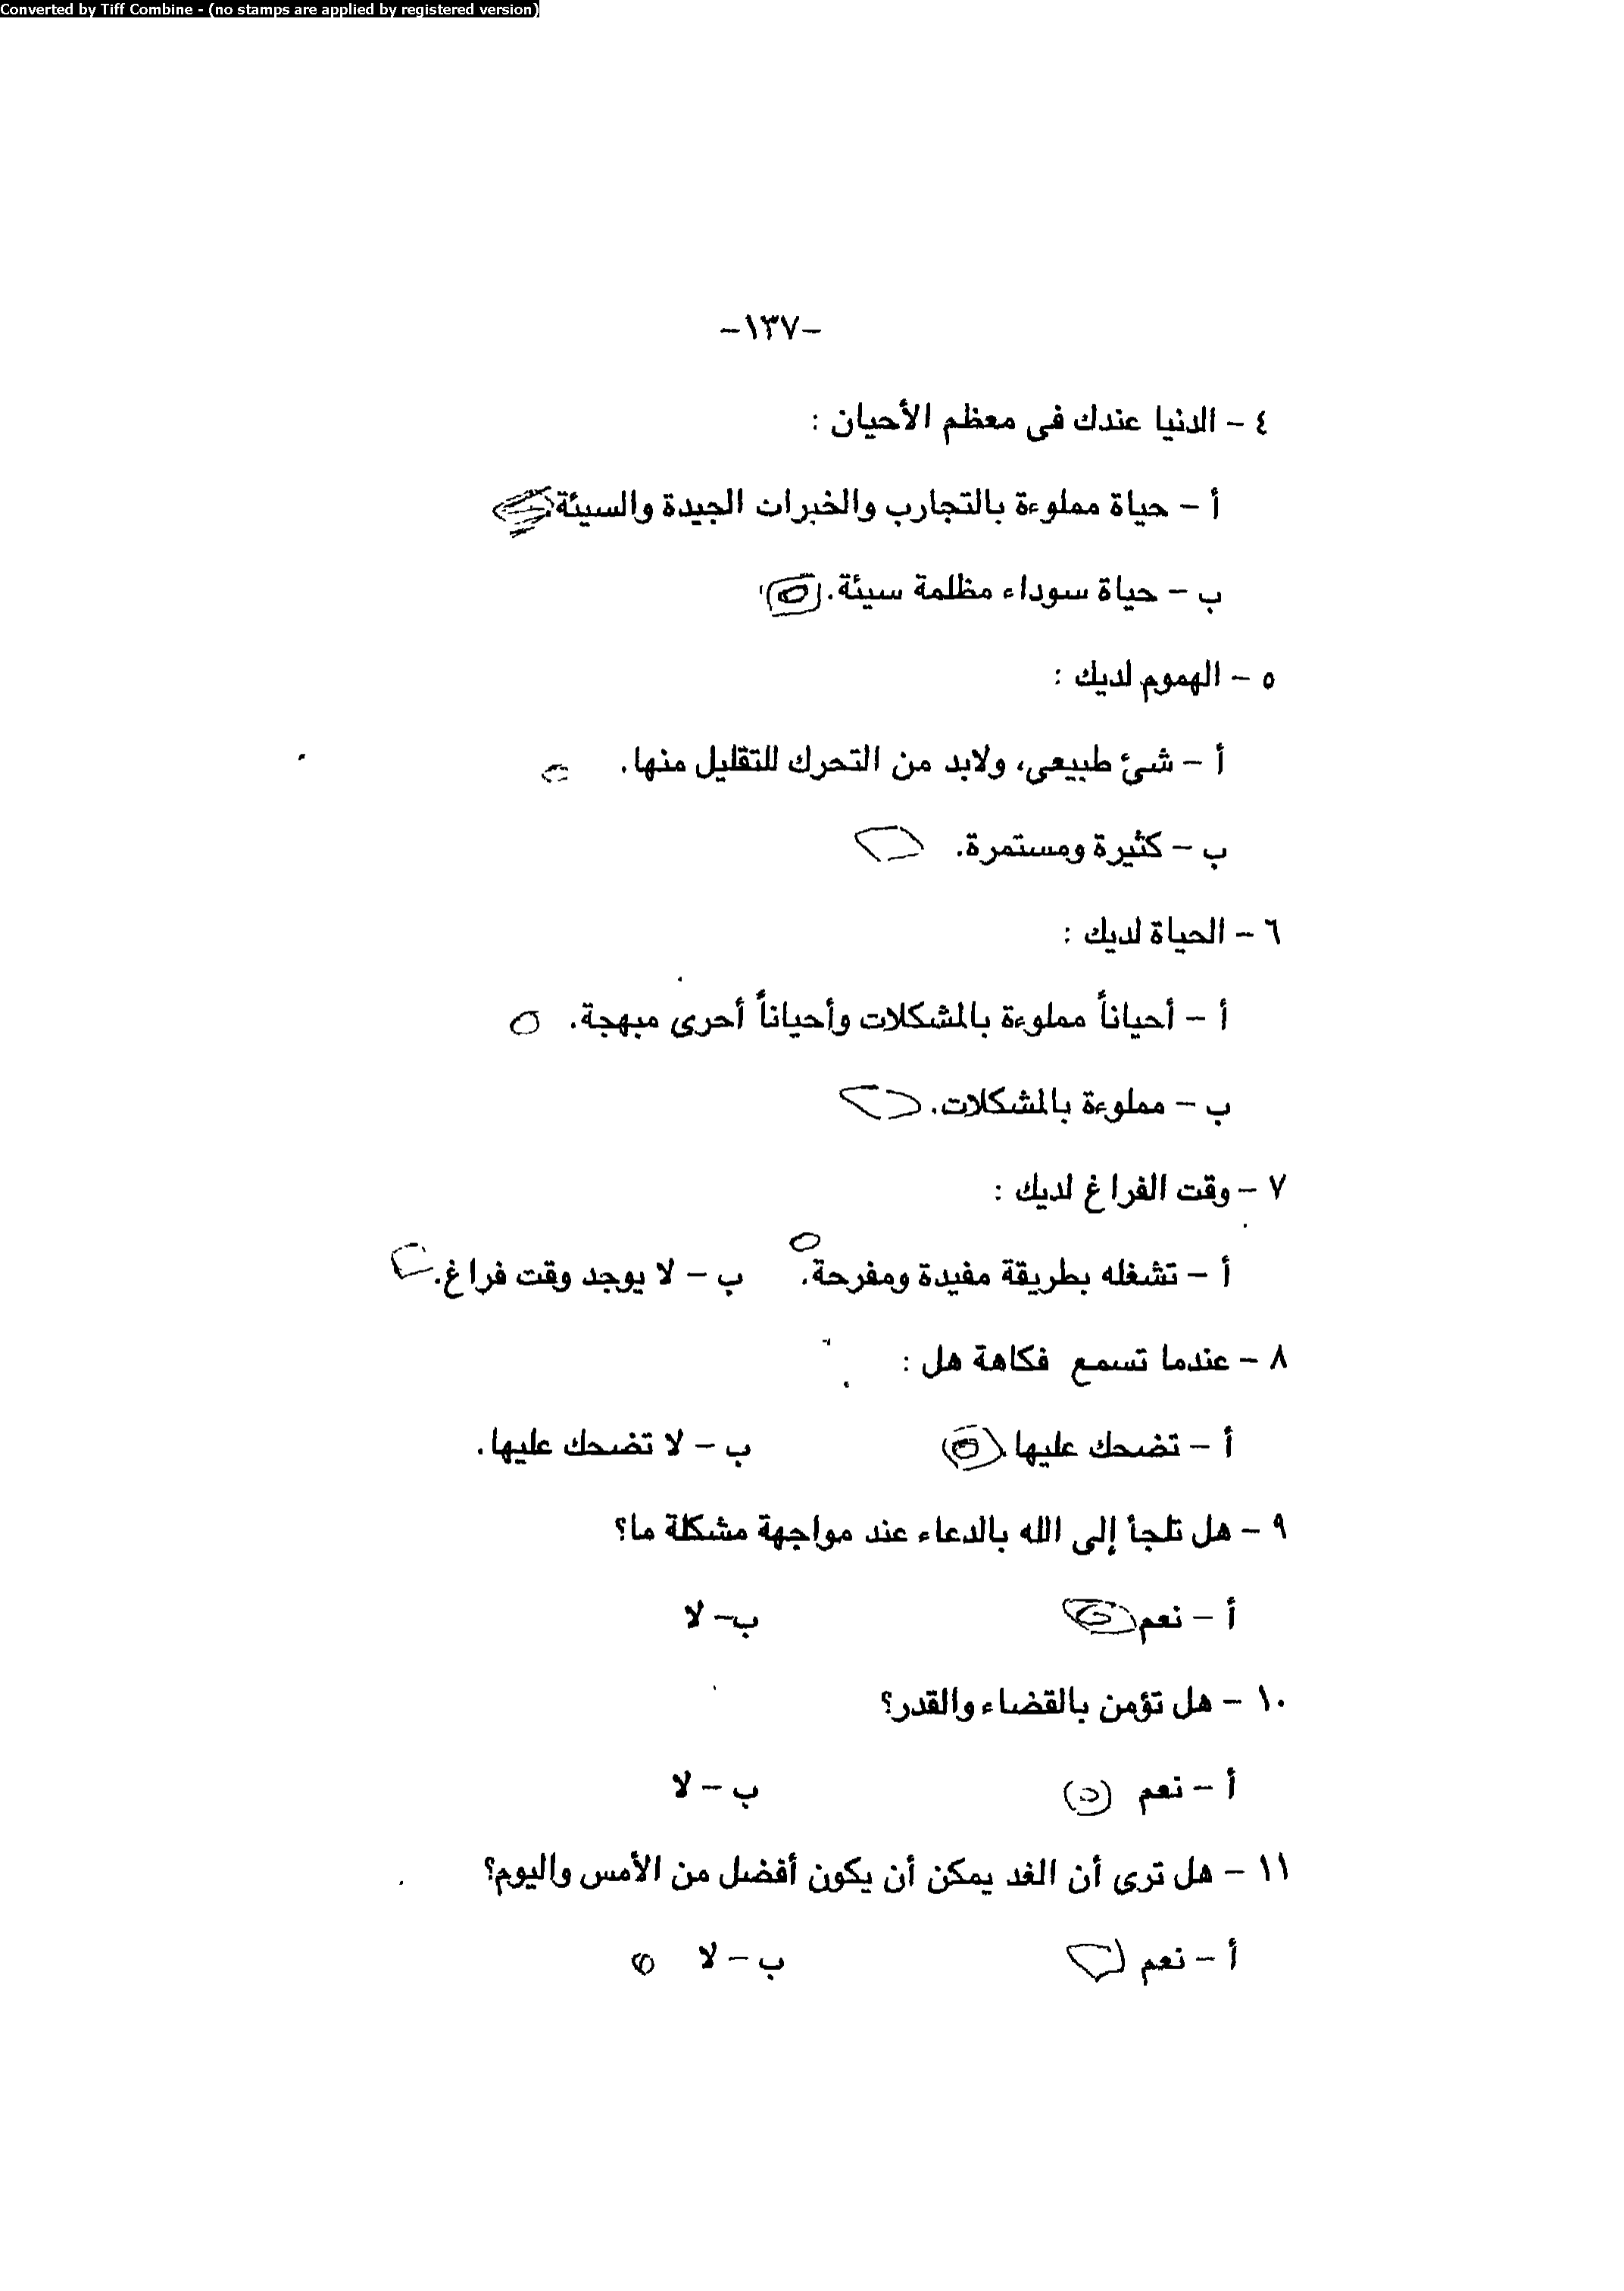 Converted by Tiff Combine - (no stamps are applied by registered version)
-١٣٧-
٤ - الدنيا عندك فى معظم الأحيان :
أ - حياة مملوءة بالتجارب والخبرات الجيدة والسيئة.
ب - حياة سوداء مظلمة سيئة.
٥ - الهموم لديك :
أ - شئ طبيعى، ولابد من التحرك للتقليل منها.
ب - كثيرة ومستمرة.
٦ - الحياة لديك :
أ - أحياناً مملوءة بالمشكلات وأحياناً أحرى مبهجة.
ب - مملوءة بالمشكلات.
٧ - وقت الفراغ لديك :
أ - تشغله بطريقة مفيدة ومفرحة. ب - لا يوجد وقت فراغ.
٨ - عندما تسمع فكاهة هل :
أ - تضحك عليها. ب - لا تضحك عليها.
٩ - هل تلجأ إلى الله بالدعاء عند مواجهة مشكلة ما؟
أ - نعم ب- لا
١٠ - هل تؤمن بالقضاء والقدر؟
أ - نعم ب - لا
١١ - هل ترى أن الغد يمكن أن يكون أفضل من الأمس واليوم؟
أ - نعم ب - لا